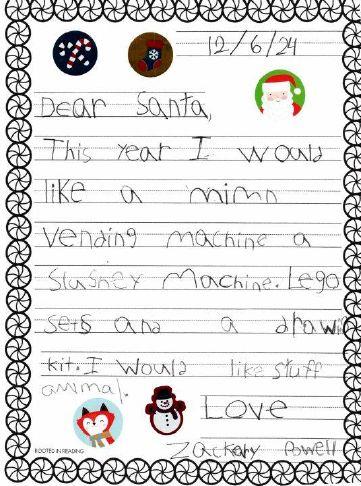 12/6/24
Dear Santa,
This year I would
like a mimn
vending machine a
Slushey Machine. Lego
sets and a drawi
kit. I would like stuff
animal.
Love
Zackary Powell
ROOTED IN READING